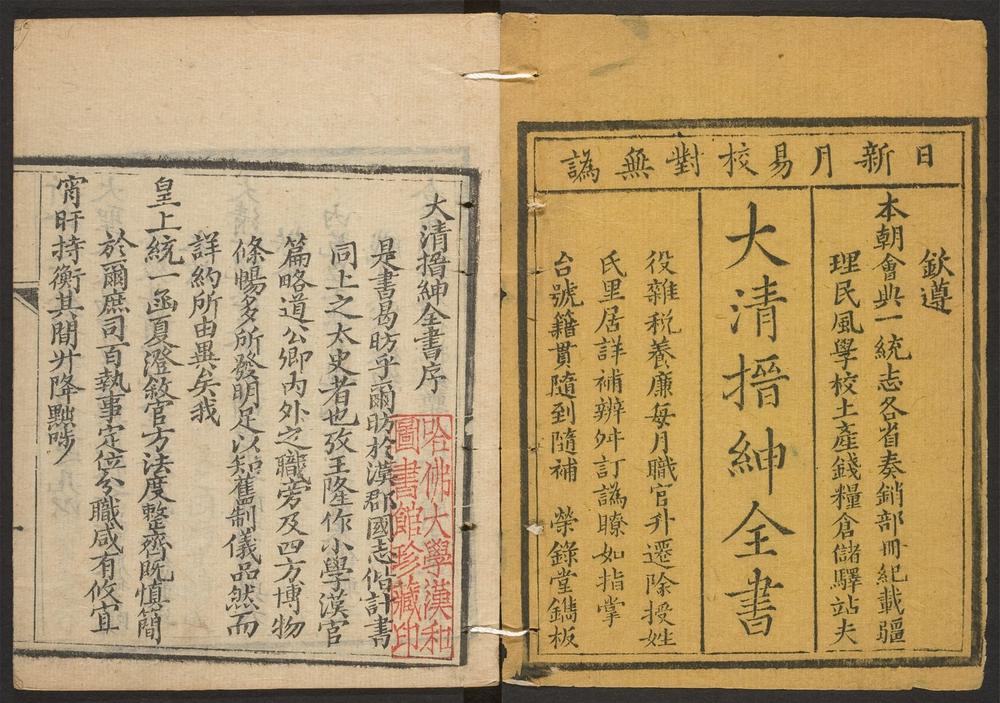 日新月易校對無譌
欽遵
本朝會典一統志各省奏銷部冊紀載疆
理民風學校土產錢糧倉儲驛站夫
大清搢紳全書
役雜税養廉每月職官升遷除授姓
氏里居詳補辨舛訂譌瞭如指掌
台號籍貫隨到隨補 榮錄堂鐫板
大清搢紳全書序
是書曷昉乎爾昉於漢郡國志偕計書
同上之太史者也攷王隆作小學漢官
篇略道公卿內外之職旁及四方博物
條暢多所發明足以知舊制儀品然而
詳約所由異矣我
皇上統一函夏澄敘官方法度整齊既慎簡
於爾庶司百執事定位分職咸有攸宜
宵旰持衡其間升降黜陟
哈佛大學漢和
圖書館珍藏印